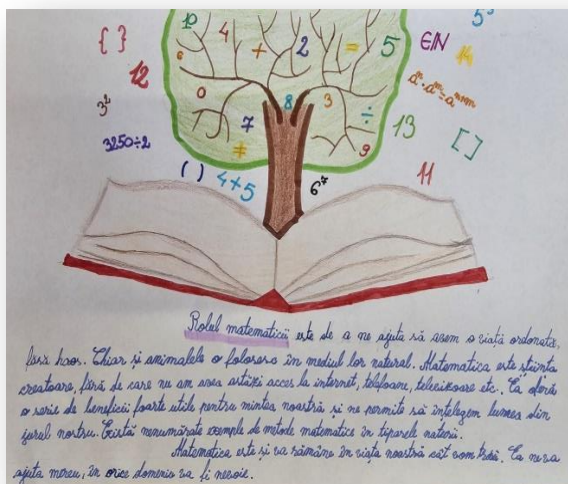 10 4 + 2 = 5 5³
{ } 6 E/N 14
12 0 8 3 ÷ aⁿ · aᵐ = aⁿ⁺ᵐ
3² 7 13
3250÷2 ≠ 9 [ ]
( ) 4+5 6⁷ 11
Rolul matematicii este de a ne ajuta să avem o viață ordonată,
fără haos. Chiar și animalele o folosesc în mediul lor natural. Matematica este știința
creatoare, fără de care nu am avea astăzi acces la internet, telefoane, televizoare etc. Ea oferă
o serie de beneficii foarte utile pentru mintea noastră și ne permite să înțelegem lumea din
jurul nostru. Există nenumărate exemple de metode matematice în tiparele naturii.
Matematica este și va rămâne în viața noastră cât vom trăi. Ea ne va
ajuta mereu, în orice domeniu va fi nevoie.